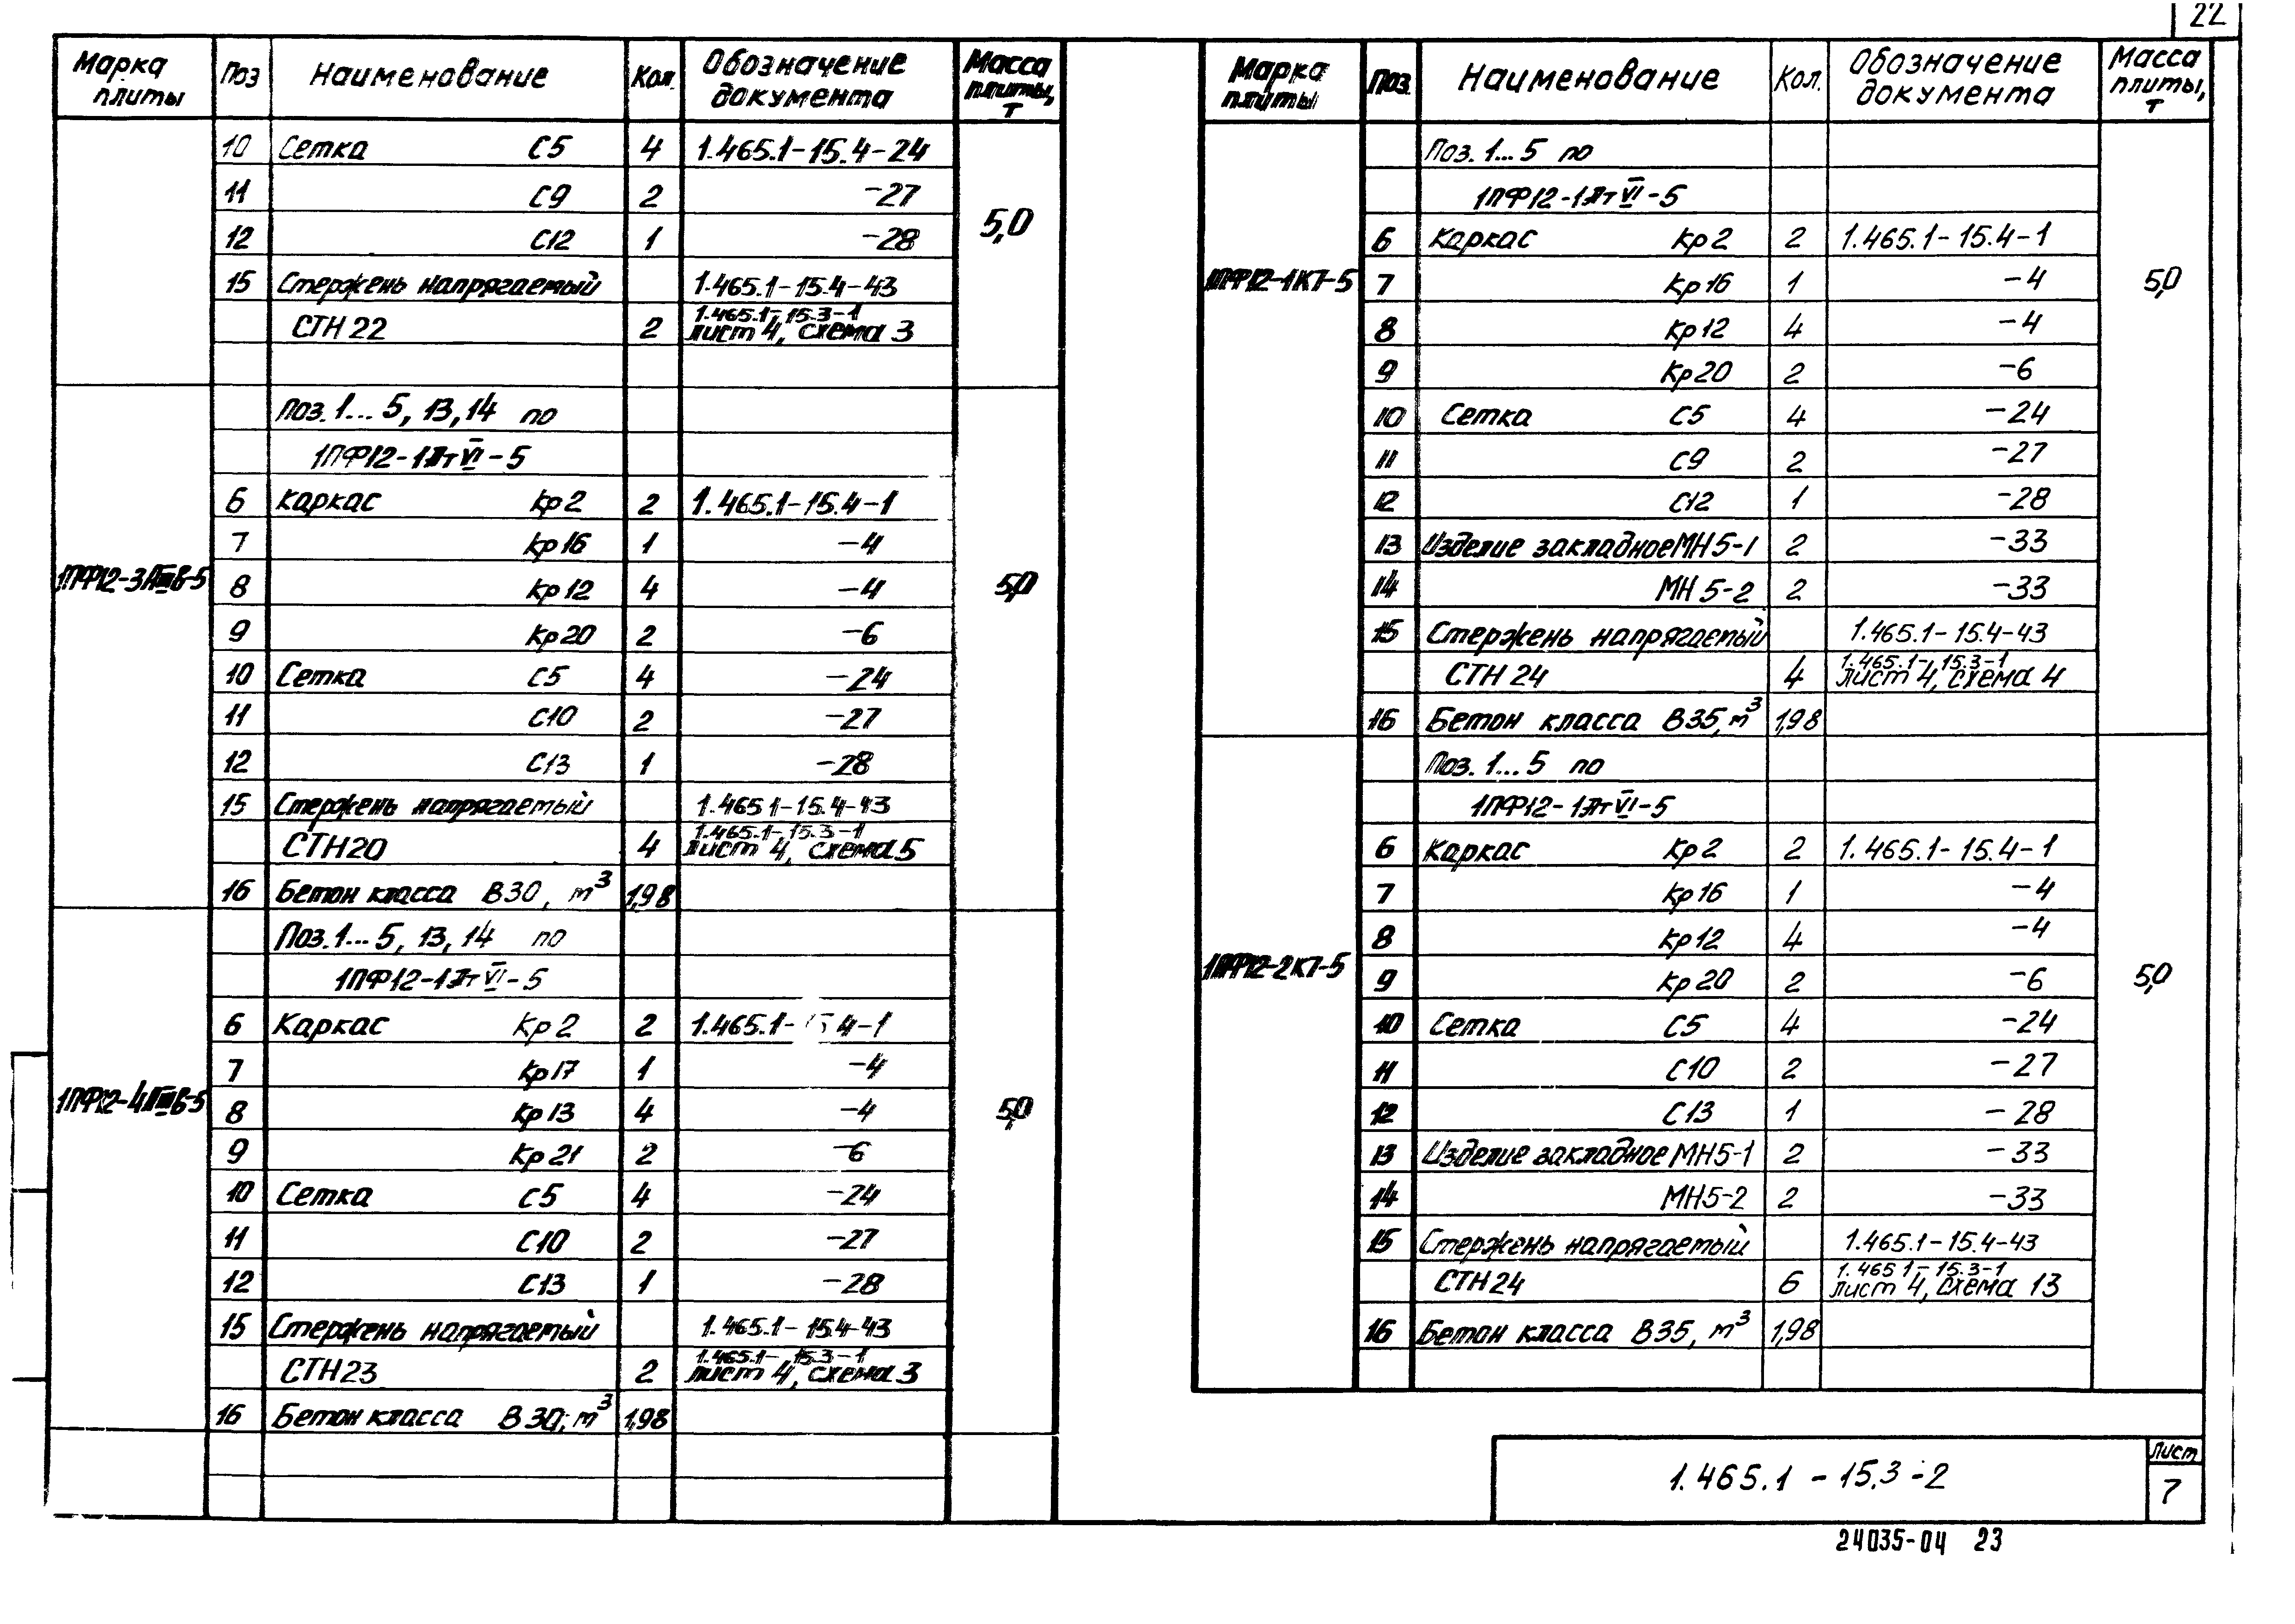 22
Марка плиты Поз Наименование Кол. Обозначение документа Масса плиты, т
10 Сетка С5 4 1.465.1-15.4-24
11 С9 2 -27
12 С12 1 -28
5,0
15 Стержень напрягаемый 1.465.1-15.4-43
СТН 22 2 1.465.1-15.3-1 лист 4, схема 3
Поз. 1... 5, 13, 14 по
1ПФ12-1АтVI-5
6 Каркас Кр 2 2 1.465.1-15.4-1
7 Кр 16 1 -4
1ПФ12-3АIIIв-5 8 Кр 12 4 -4 5,0
9 Кр 20 2 -6
10 Сетка С5 4 -24
11 С10 2 -27
12 С13 1 -28
15 Стержень напрягаемый 1.465.1-15.4-43
СТН 20 4 1.465.1-15.3-1 лист 4, схема 5
16 Бетон класса В30, м³ 1,98
Поз. 1... 5, 13, 14 по
1ПФ12-1АтVI-5
6 Каркас Кр 2 2 1.465.1-15.4-1
7 Кр 17 1 -4
1ПФ12-4АIIIв-5 8 Кр 13 4 -4 5,0
9 Кр 21 2 -6
10 Сетка С5 4 -24
11 С10 2 -27
12 С13 1 -28
15 Стержень напрягаемый 1.465.1-15.4-43
СТН 23 2 1.465.1-15.3-1 лист 4, схема 3
16 Бетон класса В30, м³ 1,98
Марка плиты Поз. Наименование Кол. Обозначение документа Масса плиты, т
Поз. 1... 5 по
1ПФ12-1АтVI-5
6 Каркас Кр 2 2 1.465.1-15.4-1
1ПФ12-1К7-5 7 Кр 16 1 -4 5,0
8 Кр 12 4 -4
9 Кр 20 2 -6
10 Сетка С5 4 -24
11 С9 2 -27
12 С12 1 -28
13 Изделие закладное МН 5-1 2 -33
14 МН 5-2 2 -33
15 Стержень напрягаемый 1.465.1-15.4-43
СТН 24 4 1.465.1-15.3-1 лист 4, схема 4
16 Бетон класса В35, м³ 1,98
Поз. 1... 5 по
1ПФ12-1АтVI-5
6 Каркас Кр 2 2 1.465.1-15.4-1
7 Кр 16 1 -4
8 Кр 12 4 -4
1ПФ12-2К7-5 9 Кр 20 2 -6 5,0
10 Сетка С5 4 -24
11 С10 2 -27
12 С13 1 -28
13 Изделие закладное МН5-1 2 -33
14 МН5-2 2 -33
15 Стержень напрягаемый 1.465.1-15.4-43
СТН 24 6 1.465.1-15.3-1 лист 4, схема 13
16 Бетон класса В35, м³ 1,98
1.465.1-15.3-2
Лист
7
24035-04 23